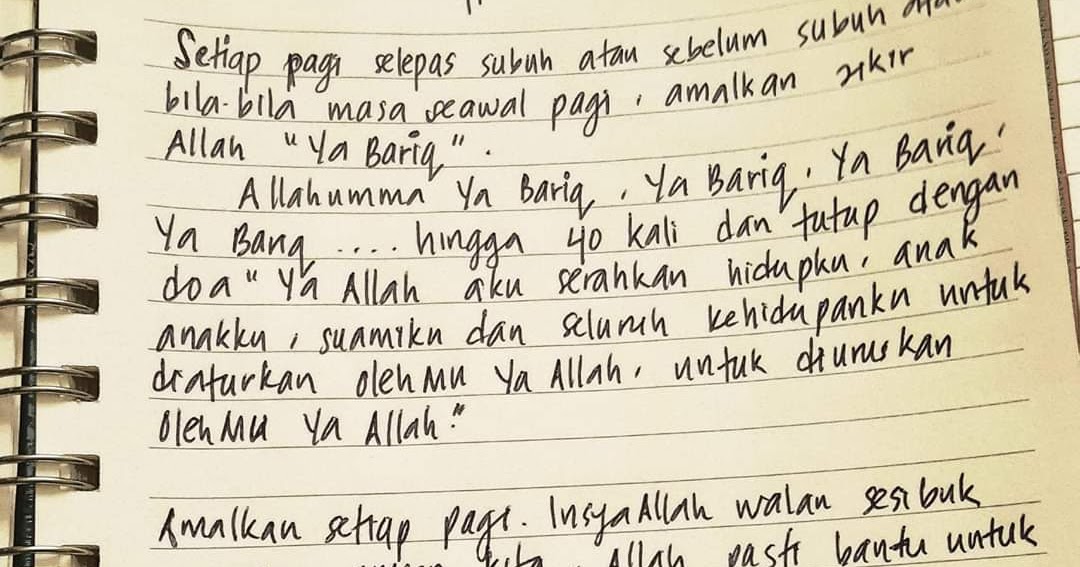 Setiap pagi selepas subuh atau sebelum subuh atau
bila-bila masa seawal pagi, amalkan zikir
Allah "Ya Bariq".
Allahumma Ya Bariq, Ya Bariq, Ya Bariq,
Ya Bariq .... hingga 40 kali dan tutup dengan
doa "Ya Allah aku serahkan hidupku, anak
anakku, suamiku dan seluruh kehidupanku untuk
diaturkan olehMu Ya Allah, untuk diuruskan
olehMu Ya Allah."
Amalkan setiap pagi. InsyaAllah walau sesibuk
kita, Allah pasti bantu untuk